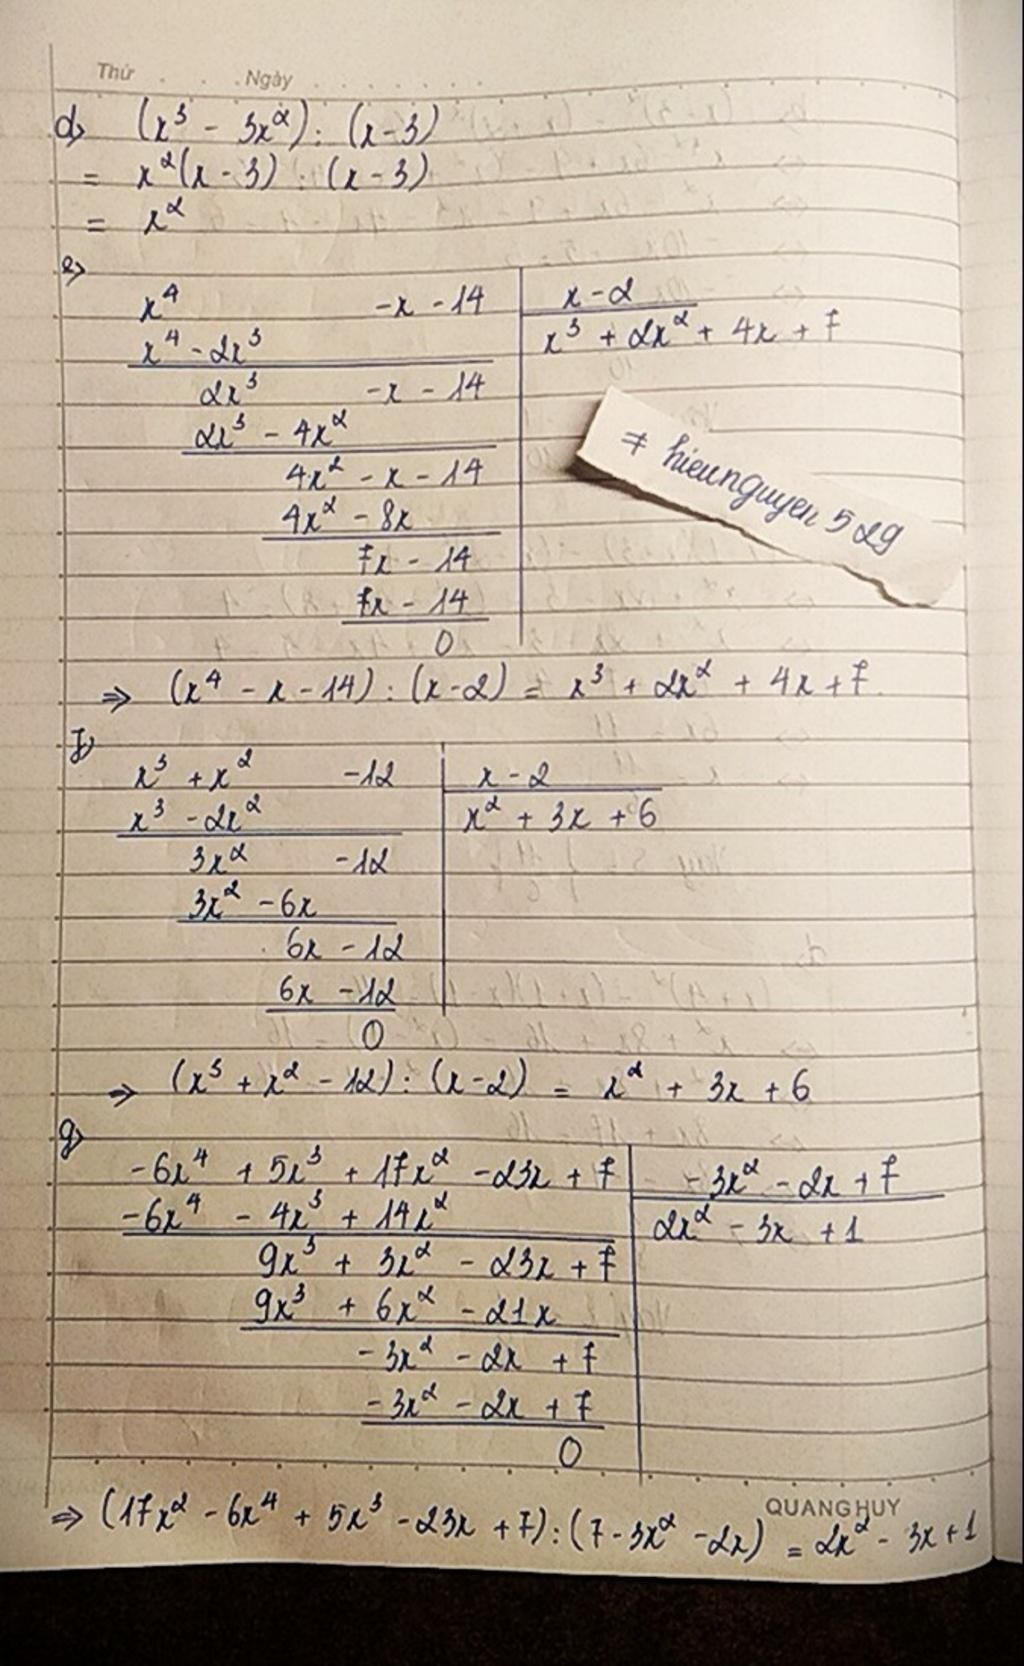 Thứ . . . Ngày . . . . . .
d) (x³ - 3x²) : (x - 3)
= x²(x - 3) : (x - 3)
= x²
e)
x⁴ - x - 14 | x - 2
x⁴ - 2x³ | x³ + 2x² + 4x + 7
2x³ - x - 14
2x³ - 4x²
4x² - x - 14
4x² - 8x
7x - 14
7x - 14
0
hieunguyen 529
⇒ (x⁴ - x - 14) : (x - 2) = x³ + 2x² + 4x + 7
f)
x³ + x² - 12 | x - 2
x³ - 2x² | x² + 3x + 6
3x² - 12
3x² - 6x
6x - 12
6x - 12
0
⇒ (x³ + x² - 12) : (x - 2) = x² + 3x + 6
g)
-6x⁴ + 5x³ + 17x² - 23x + 7 | -3x² - 2x + 7
-6x⁴ - 4x³ + 14x² | 2x² - 3x + 1
9x³ + 3x² - 23x + 7
9x³ + 6x² - 21x
-3x² - 2x + 7
-3x² - 2x + 7
0
QUANG HUY
⇒ (17x² - 6x⁴ + 5x³ - 23x + 7) : (7 - 3x² - 2x) = 2x² - 3x + 1